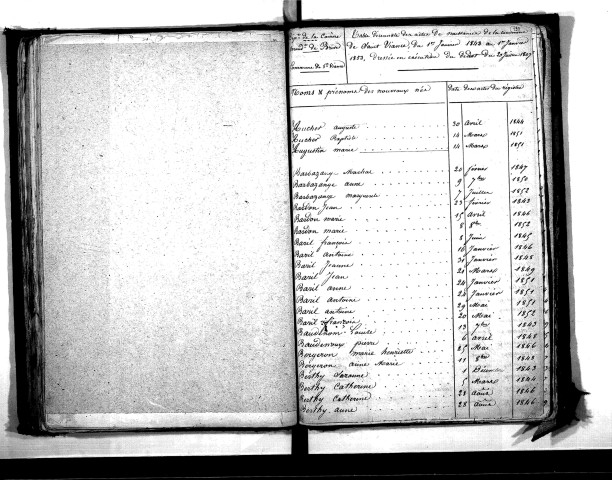 Dépt de la Corrèze
Arrondt de Brive
Commune de St Viance
Table décennale des actes de naissance de la commune
de Saint Viance, du 1er Janvier 1843 au 1er Janvier
1853, dressée en exécution du décret du 20 Juillet 1807
Noms & prénoms des nouveaux nés
Date des actes du registre
Aucher auguste 30 Avril 1844
Aucher Baptiste 14 Mars 1851
Augustin marie 14 Mars 1851
Barbazange 20 février 1847
Barbazange anne 9 7bre 1850
Barbazange marguerite 7 Juillet 1852
Bardon Jean 23 Février 1843
Bardon marie 15 Avril 1846
Bardon marie 8 8bre 1852
Baril françoise 8 Juin 1845
Baril antoine 14 Janvier 1846
Baril Jeanne 31 Janvier 1848
Baril Jean 21 Mars 1849
Baril anne 24 Janvier 1851
Baril Antoine 26 Janvier 1851
Baril antoine 29 Mai 1851
Baril françois 20 Mai 1852
Louise 13 7bre 1843
pierre 6 avril 1845
Bergeron marie henriette 25 Mai 1846
Bergeron anne Marie 11 8bre 1848
Berthy 1 Décembre 1843
Berthy Catherine 5 Mars 1844
Berthy Catherine 28 août 1846
Berthy anne 28 août 1846